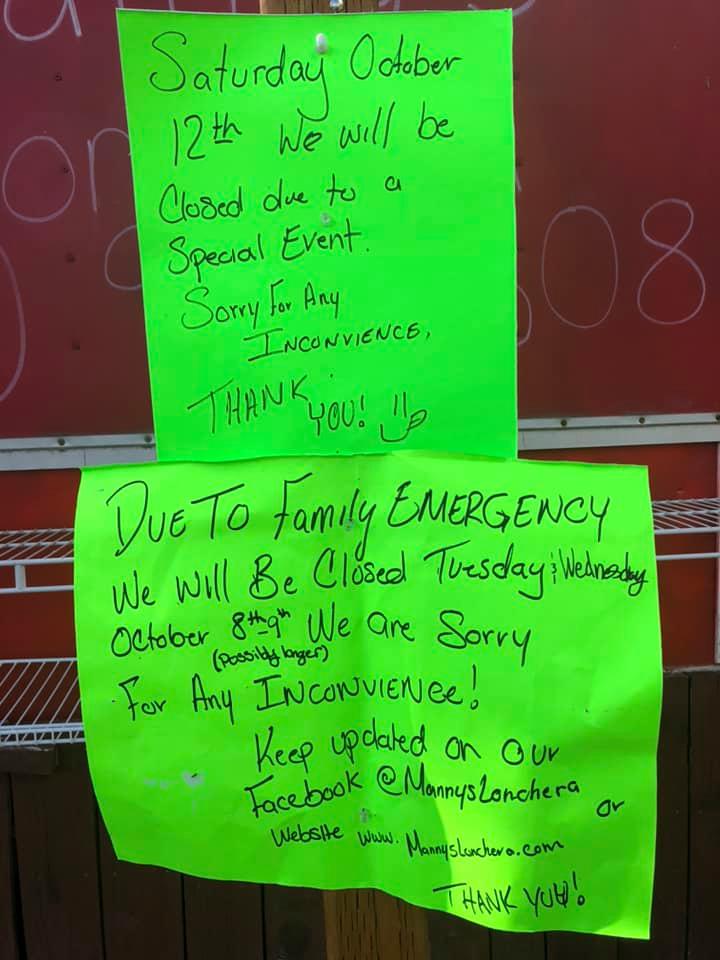 Saturday October
12th We will be
Closed due to a
Special Event.
Sorry For Any
INCONVIENCE,
THANK YOU!
DUE TO Family EMERGENCY
We Will Be Closed Tuesday & Wednesday
October 8th-9th We are Sorry
(possibly longer)
For Any INCONVIENCE!
Keep updated on Our
Facebook @MannysLonchera or
Website www.Mannyslonchera.com
THANK YOU!
08